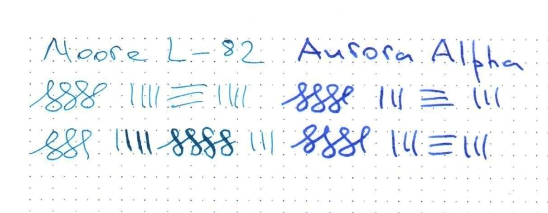 Moore L-82 Aurora Alpha